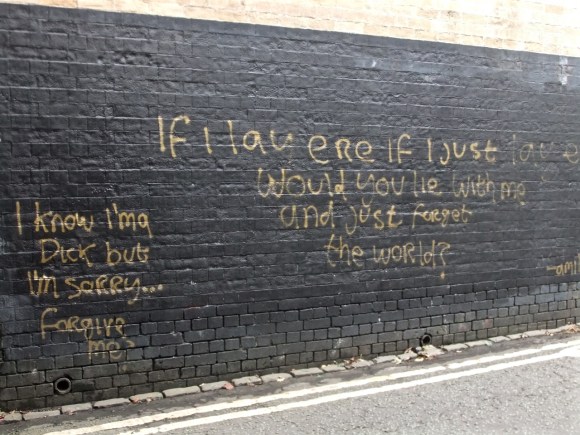 If I lay ere If I Just
Would you lie with me
and just forget
the world?
I know i'ma
Dick but
i'm sorry...
forgive
me?